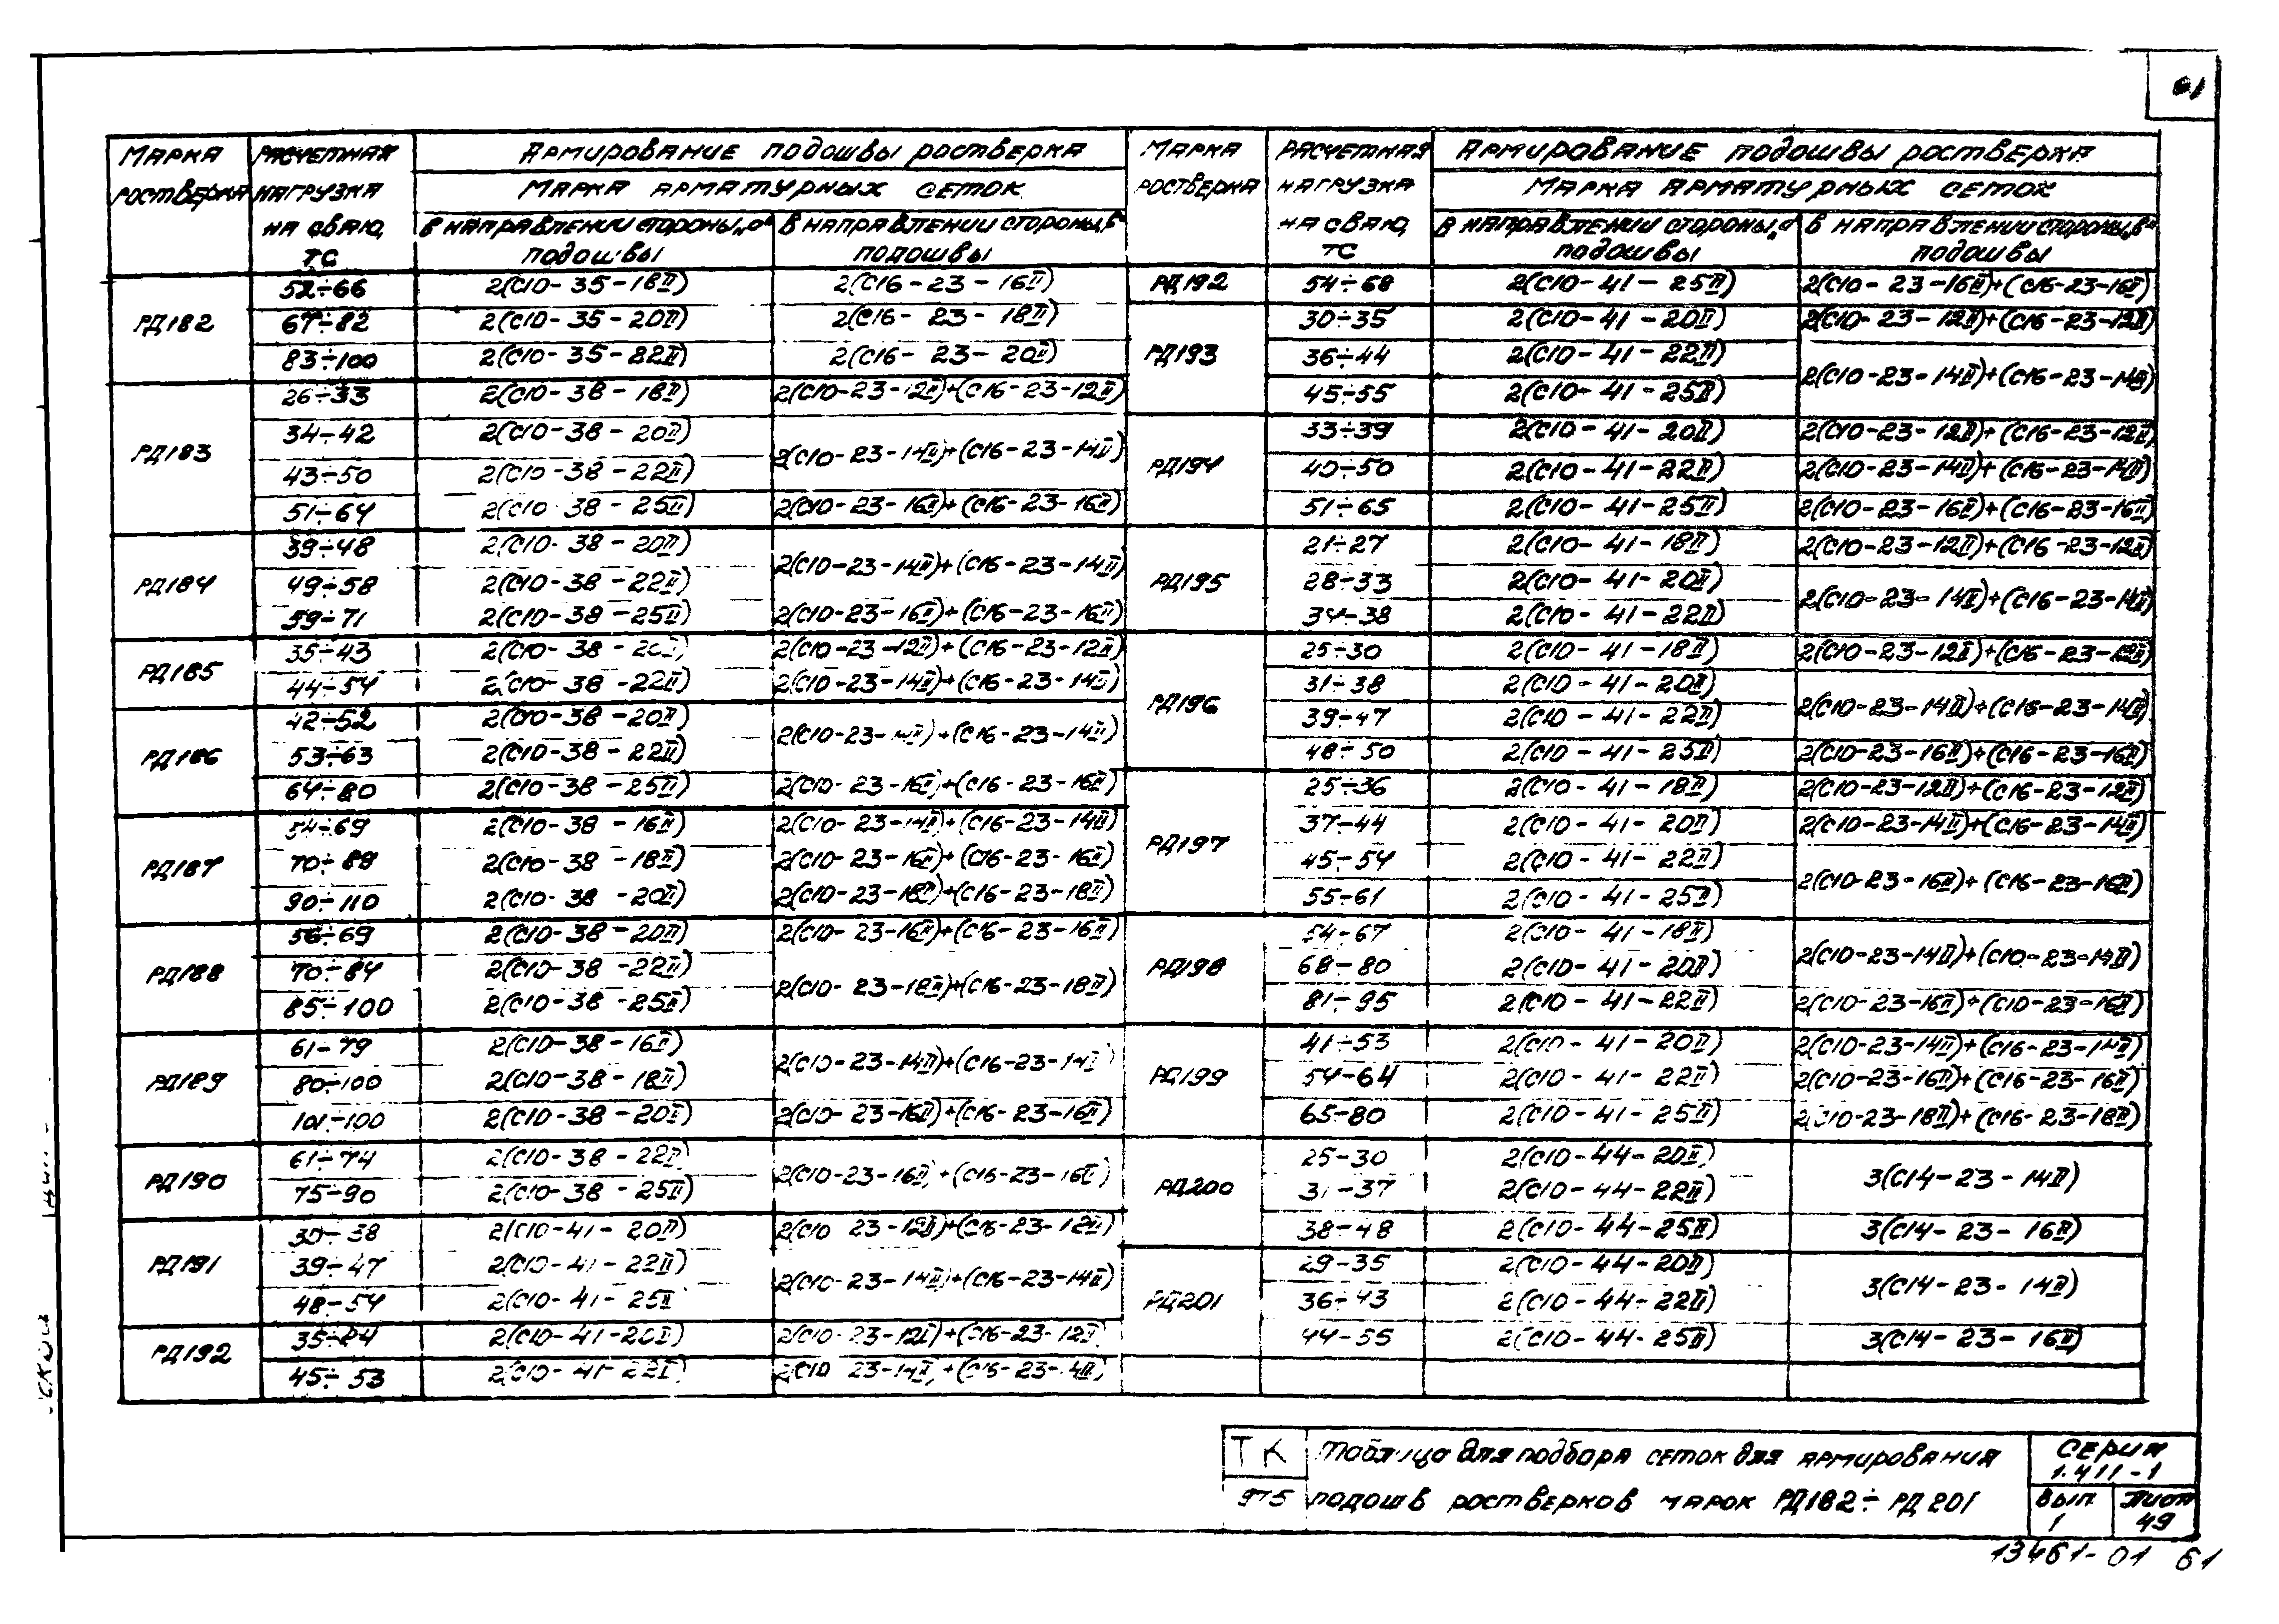 61
МАРКА РОСТВЕРКА | РАСЧЕТНАЯ НАГРУЗКА НА СВАЮ, ТС | Армирование подошвы ростверка
МАРКА АРМАТУРНЫХ СЕТОК
в направлении стороны „а“ подошвы | в направлении стороны „в“ подошвы
РД182 | 52÷66 | 2(С10-35-18II) | 2(С16-23-16II)
67÷82 | 2(С10-35-20II) | 2(С16-23-18II)
83÷100 | 2(С10-35-22II) | 2(С16-23-20II)
РД183 | 26÷33 | 2(С10-38-18II) | 2(С10-23-12II)+(С16-23-12II)
34÷42 | 2(С10-38-20II) | 2(С10-23-14II)+(С16-23-14II)
43÷50 | 2(С10-38-22II)
51÷64 | 2(С10-38-25II) | 2(С10-23-16II)+(С16-23-16II)
РД184 | 39÷48 | 2(С10-38-20II) | 2(С10-23-14II)+(С16-23-14II)
49÷58 | 2(С10-38-22II)
59÷71 | 2(С10-38-25II) | 2(С10-23-16II)+(С16-23-16II)
РД185 | 35÷43 | 2(С10-38-20II) | 2(С10-23-12II)+(С16-23-12II)
44÷54 | 2(С10-38-22II) | 2(С10-23-14II)+(С16-23-14II)
РД186 | 42÷52 | 2(С10-38-20II) | 2(С10-23-14II)+(С16-23-14II)
53÷63 | 2(С10-38-22II)
64÷80 | 2(С10-38-25II) | 2(С10-23-16II)+(С16-23-16II)
РД187 | 54÷69 | 2(С10-38-16II) | 2(С10-23-14II)+(С16-23-14II)
70÷89 | 2(С10-38-18II) | 2(С10-23-16II)+(С16-23-16II)
90÷110 | 2(С10-38-20II) | 2(С10-23-18II)+(С16-23-18II)
РД188 | 56÷69 | 2(С10-38-20II) | 2(С10-23-16II)+(С16-23-16II)
70÷84 | 2(С10-38-22II) | 2(С10-23-18II)+(С16-23-18II)
85÷100 | 2(С10-38-25II)
РД189 | 61÷79 | 2(С10-38-16II) | 2(С10-23-14II)+(С16-23-14II)
80÷100 | 2(С10-38-18II)
101÷100 | 2(С10-38-20II) | 2(С10-23-16II)+(С16-23-16II)
РД190 | 61÷74 | 2(С10-38-22II) | 2(С10-23-16II)+(С16-23-16II)
75÷90 | 2(С10-38-25II)
РД191 | 30÷38 | 2(С10-41-20II) | 2(С10 23-12II)+(С16-23-12II)
39÷47 | 2(С10-41-22II) | 2(С10-23-14II)+(С16-23-14II)
48÷54 | 2(С10-41-25II
РД192 | 35÷44 | 2(С10-41-20II) | 2(С10-23-12II)+(С16-23-12II)
45÷53 | 2(С10-41-22II) | 2(С10 23-14II)+(С16-23-14II)
МАРКА РОСТВЕРКА | РАСЧЕТНАЯ НАГРУЗКА НА СВАЮ, ТС | Армирование подошвы ростверка
МАРКА АРМАТУРНЫХ СЕТОК
в направлении стороны „а“ подошвы | в направлении стороны „в“ подошвы
РД192 | 54÷68 | 2(С10-41-25II) | 2(С10-23-16II)+(С16-23-16II)
РД193 | 30÷35 | 2(С10-41-20II) | 2(С10-23-12II)+(С16-23-12II)
36÷44 | 2(С10-41-22II) | 2(С10-23-14II)+(С16-23-14II)
45÷55 | 2(С10-41-25II)
РД194 | 33÷39 | 2(С10-41-20II) | 2(С10-23-12II)+(С16-23-12II)
40÷50 | 2(С10-41-22II) | 2(С10-23-14II)+(С16-23-14II)
51÷65 | 2(С10-41-25II) | 2(С10-23-16II)+(С16-23-16II)
РД195 | 21÷27 | 2(С10-41-18II) | 2(С10-23-12II)+(С16-23-12II)
28÷33 | 2(С10-41-20II) | 2(С10-23-14II)+(С16-23-14II)
34÷38 | 2(С10-41-22II)
РД196 | 25÷30 | 2(С10-41-18II) | 2(С10-23-12II)+(С16-23-12II)
31÷38 | 2(С10-41-20II) | 2(С10-23-14II)+(С16-23-14II)
39÷47 | 2(С10-41-22II)
48÷50 | 2(С10-41-25II) | 2(С10-23-16II)+(С16-23-16II)
РД197 | 25÷36 | 2(С10-41-18II) | 2(С10-23-12II)+(С16-23-12II)
37÷44 | 2(С10-41-20II) | 2(С10-23-14II)+(С16-23-14II)
45÷54 | 2(С10-41-22II) | 2(С10-23-16II)+(С16-23-16II)
55÷61 | 2(С10-41-25II)
РД198 | 54-67 | 2(С10-41-18II) | 2(С10-23-14II)+(С10-23-14II)
68-80 | 2(С10-41-20II)
81÷95 | 2(С10-41-22II) | 2(С10-23-16II)+(С10-23-16II)
РД199 | 41÷53 | 2(С10-41-20II) | 2(С10-23-14II)+(С16-23-14II)
54-64 | 2(С10-41-22II) | 2(С10-23-16II)+(С16-23-16II)
65-80 | 2(С10-41-25II) | 2(С10-23-18II)+(С16-23-18II)
РД200 | 25-30 | 2(С10-44-20II) | 3(С14-23-14II)
31-37 | 2(С10-44-22II)
38-48 | 2(С10-44-25II) | 3(С14-23-16II)
РД201 | 29-35 | 2(С10-44-20II) | 3(С14-23-14II)
36-43 | 2(С10-44-22II)
44-55 | 2(С10-44-25II) | 3(С14-23-16II)
ТК
975
Таблица для подбора сеток для армирования
подошв ростверков марок РД182÷РД201
СЕРИЯ
1.411-1
Вып. 1
Лист 49
13461-01 61